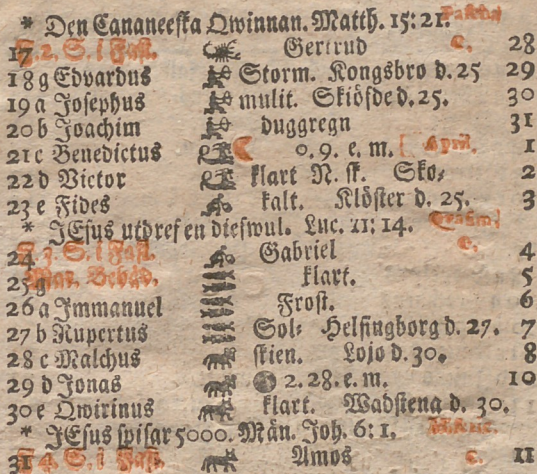 * Den Cananeeska Qwinnan. Matth. 15: 21.
17 F. 2. S. i Fast. Gertrud 28
18 g Edvardus Storm. Kongsbro d. 25 29
19 a Josephus mulit. Skiöfde d. 25. 30
20 b Joachim duggregn 31
21 c Benedictus 0. 9. e. m. [April. 1
22 d Victor klart N. sk. Sko⸗ 2
23 e Fides kalt. Klöster d. 25. 3
* JEsus utdref en diefwul. Luc. 11: 14.
24 F. 3. S. i Fast. Gabriel 4
25 g Mar. Bebåd. klart. 5
26 a Immanuel Frost. 6
27 b Rupertus Sol⸗ Helsingborg d. 27. 7
28 c Malchus skien. Lojo d. 30. 8
29 d Jonas 2. 28. e. m. 10
30 e Qwirinus klart. Wadstena d. 30.
* JEsus spisar 5000. Män. Joh. 6: 1.
31 F 4. S. i Fast. Amos 11